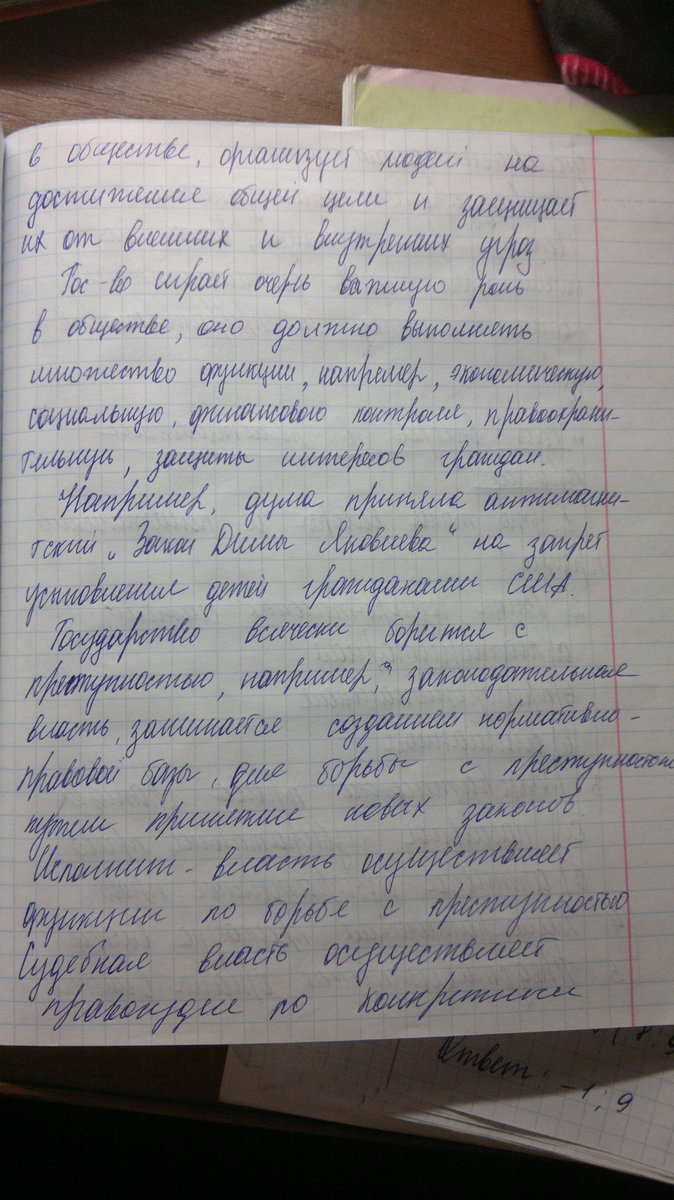 в обществе, организует людей на
достижение общей цели и защищает
их от внешних и внутренних угроз
Гос-во играет очень важную роль
в обществе, оно должно выполнять
множество функции, например, экономическую,
социальную, финансового контроля, правоохрани-
тельную, защиты интересов граждан.
Например, дума приняла антимагни-
тский „Закон Димы Яковлева“ на запрет
усыновления детей гражданами США.
Государство всячески борится с
преступностью, например, законодательная
власть, занимается созданием нормативно-
правовой базы, для борьбы с преступностью
путем принятие новых законов.
Исполнит- власть осуществляет
функции по борьбе с преступностью
Судебная власть осуществляет
правосудие по конкретным
Ответ: -1; 9